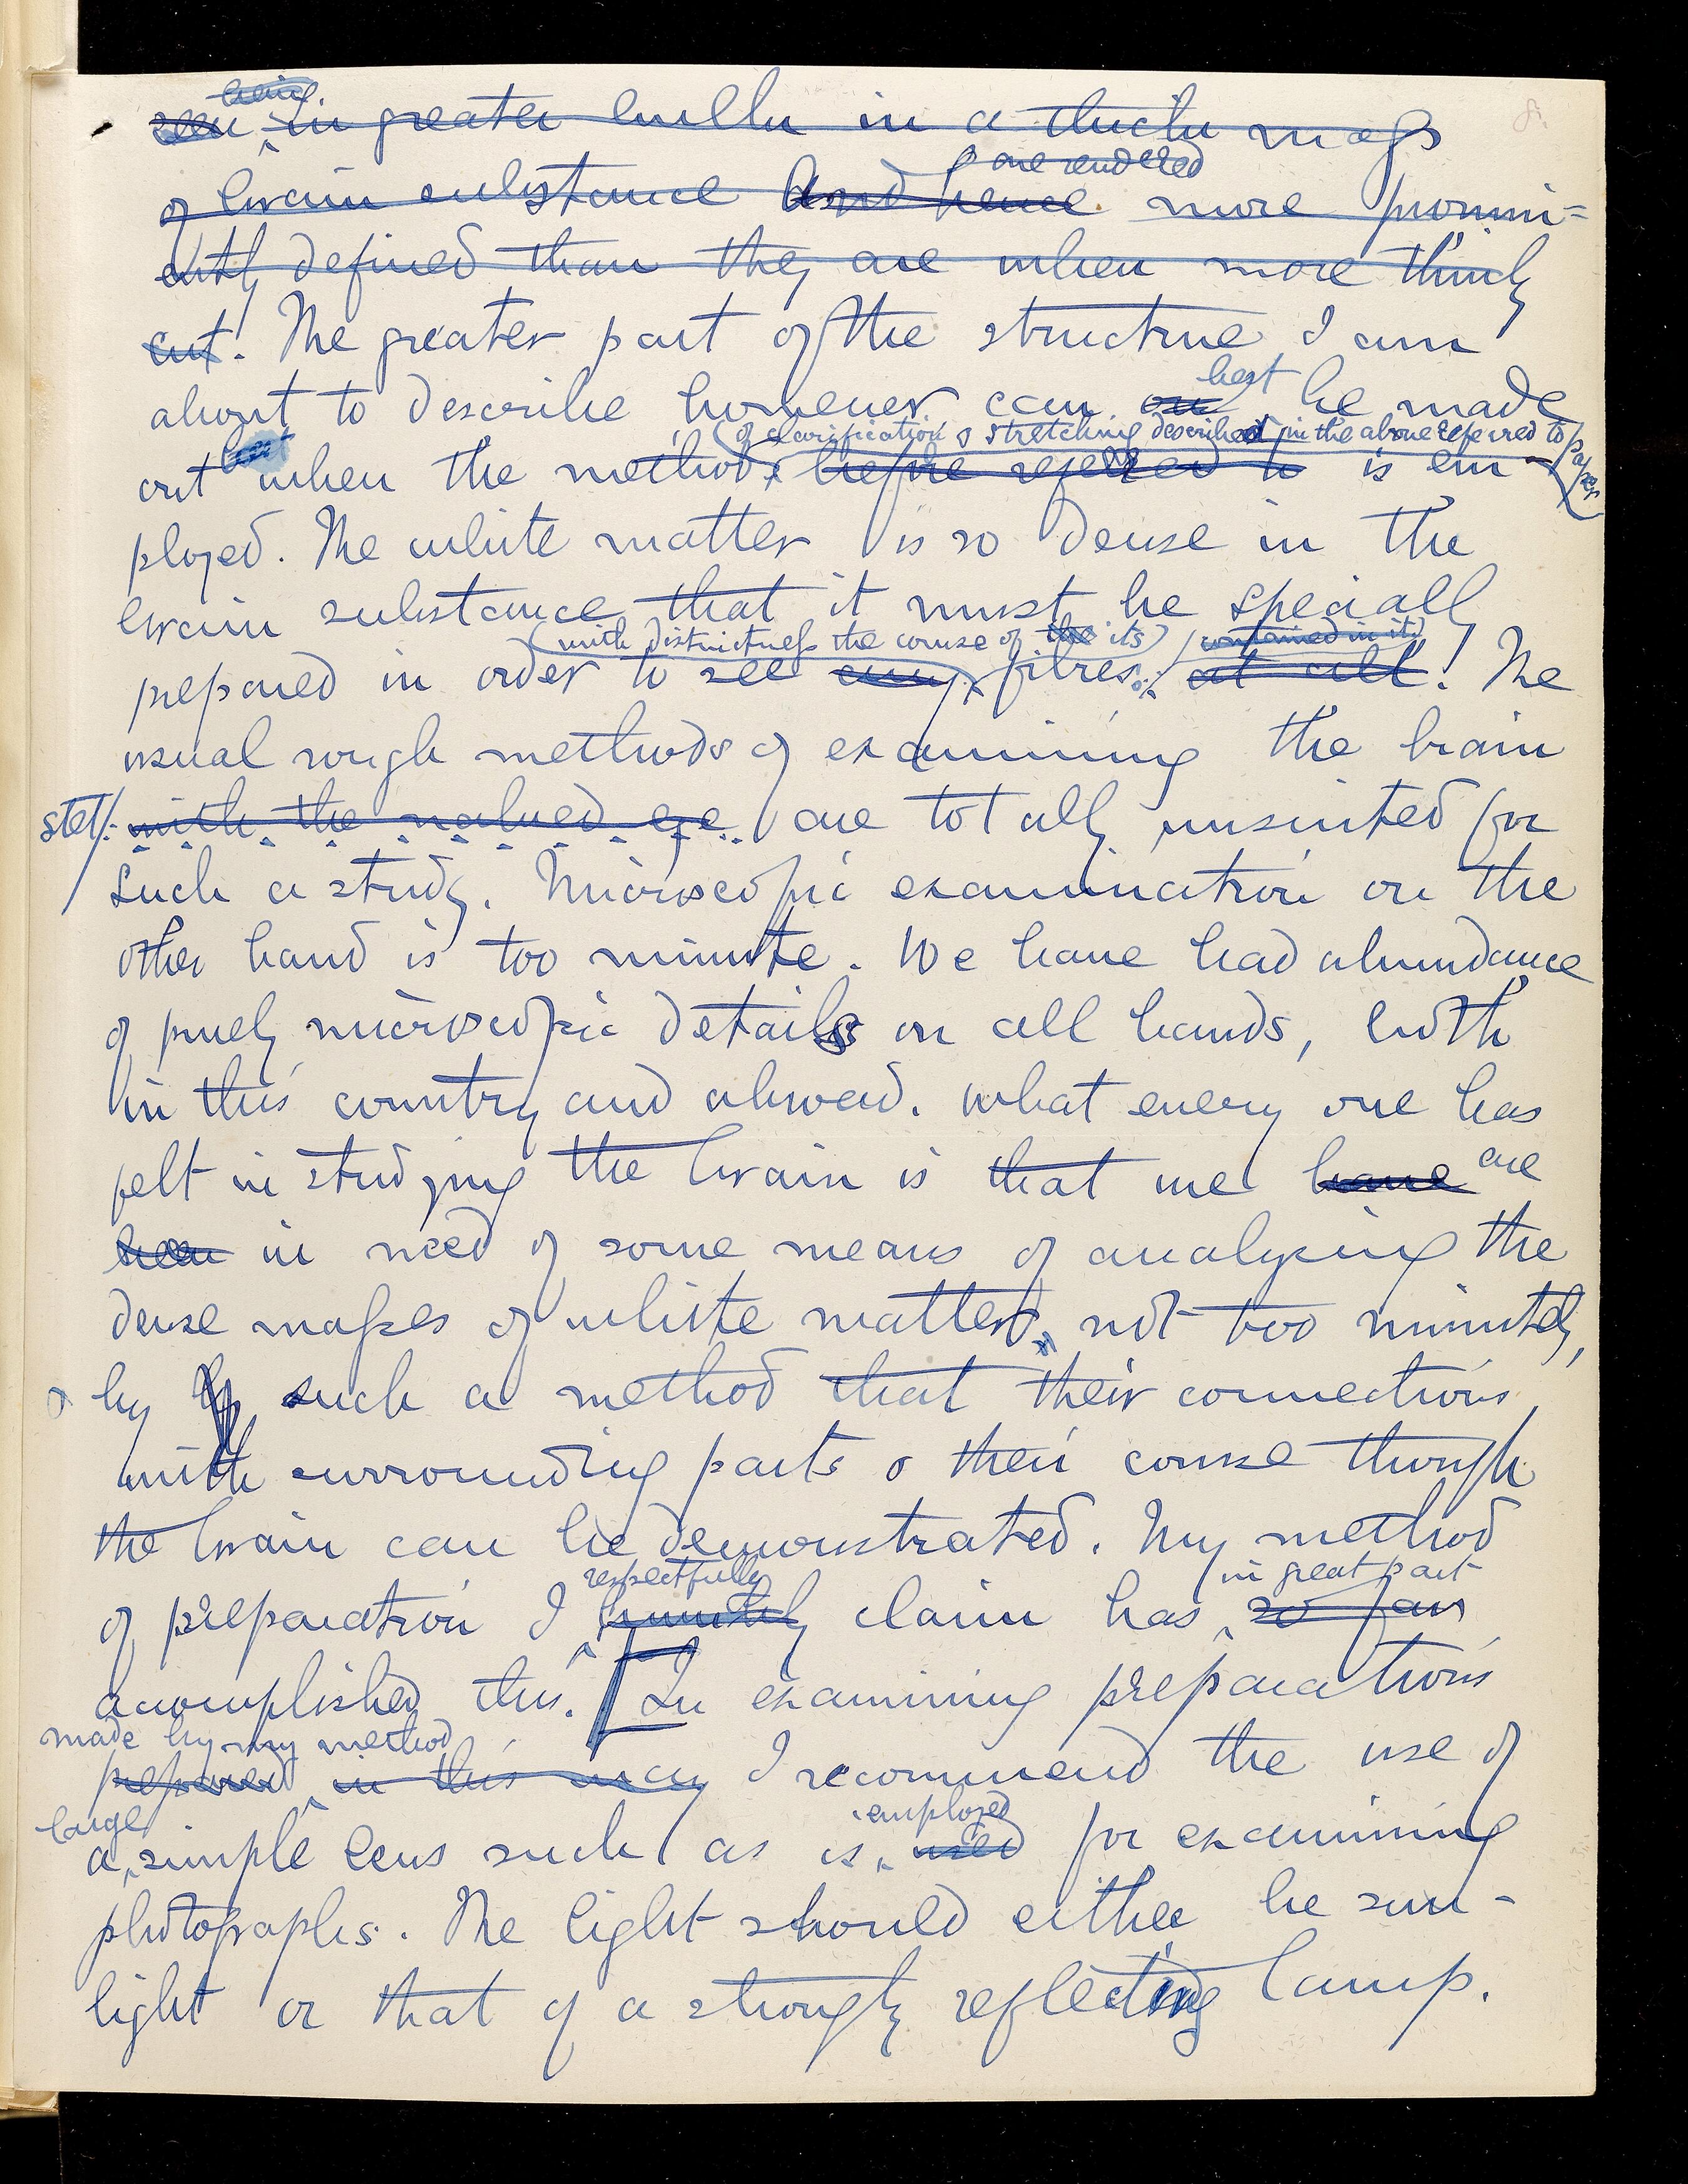 being
seen in greater bulk in a thick mass
are rendered
of brain substance and hence more promin=
ently defined than they are when more thinly
cut. The greater part of the structure I am
best
about to describe, however can be made
(of clarification & stretching described in the above referred to paper)
out when the methods before referred to is em-
ployed. The white matter is so dense in the
brain substance that it must be specially
(with distinctness the course of the its) (contained in it)
prepared in order to see any fibres at all! The
usual rough methods of examining the brain
stet/. with the naked eye are totally unsuited for
such a study. Microscopic examination on the
other hand is too minute. We have had abundance
of purely microscopic details on all hands, both
in this country and abroad. What every one has
felt in studying the brain is that we have are
been in need of some means of analysing the
dense masses of white matter, not too minutely,
& by such a method that their connections
with surrounding parts & their course through
the brain can be demonstrated. My method
respectfully in great part
of preparation I humbly claim has so far
accomplished this. [In examining preparations
made by my method
prepared in this way I recommend the use of
large employed
a simple lens such as is used for examining
photographs. The light should either be sun-
light or that of a strongly reflecting lamp.